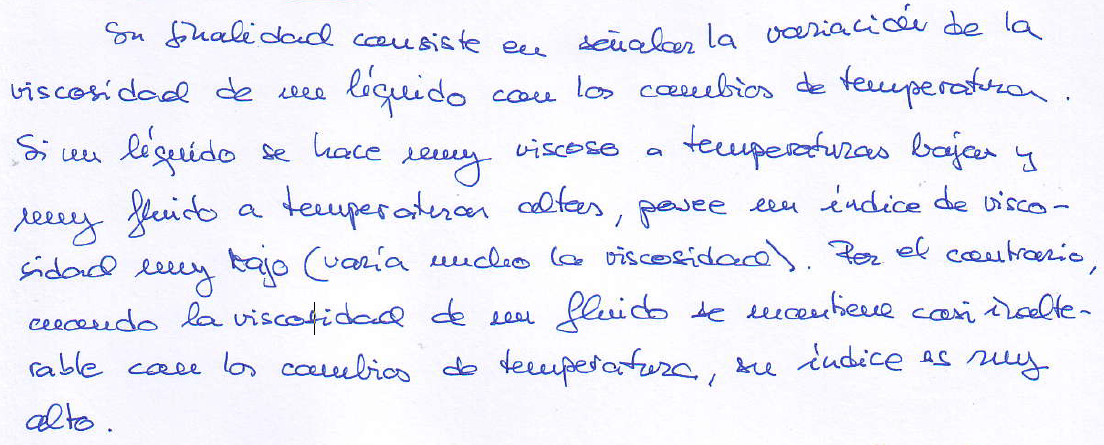 Su finalidad consiste en señalar la variación de la
viscosidad de un líquido con los cambios de temperatura.
Si un líquido se hace muy viscoso a temperaturas bajas y
muy fluido a temperaturas altas, posee un índice de visco-
sidad muy bajo (varía mucho la viscosidad). Por el contrario,
cuando la viscosidad de un fluido se mantiene casi inalte-
rable con los cambios de temperatura, su índice es muy
alto.